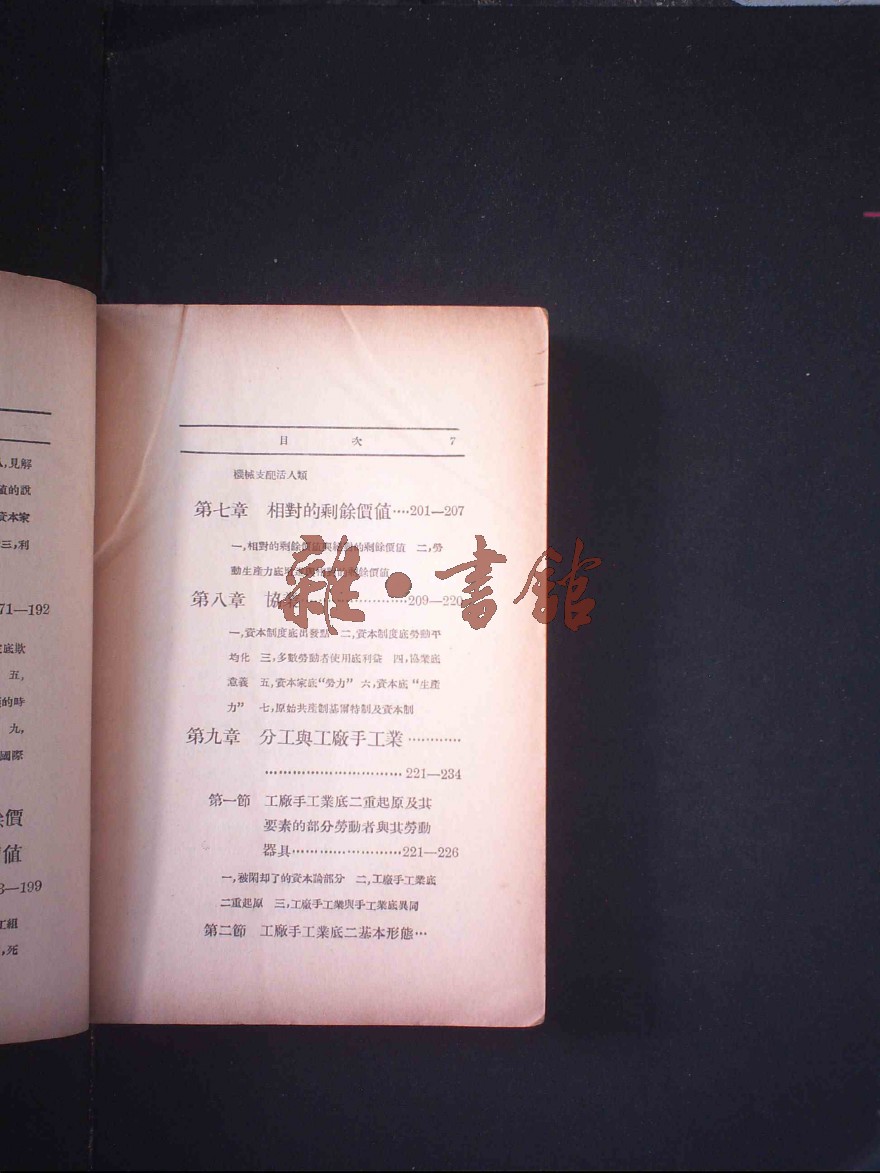 ，見解
值的說
資本家
三，利
71—192
底欺
五，
的時
九，
國際
價
值
3—199
工組
，死
目 次 7
機械支配活人類
第七章 相對的剩餘價值····201—207
一，相對的剩餘價值與絕對的剩餘價值 二，勞
動生產力底 價值
第八章 協業·····················209—220
一，資本制度底出發點 二，資本制度底勞動平
均化 三，多數勞動者使用底利益 四，協業底
意義 五，資本家底“勞力” 六，資本底“生產
力” 七，原始共產制基爾特制及資本制
第九章 分工與工廠手工業············
······························221—234
第一節 工廠手工業底二重起原及其
要素的部分勞動者與其勞動
器具························221—226
一，被閑却了的資本論部分 二，工廠手工業底
二重起原 三，工廠手工業與手工業底異同
第二節 工廠手工業底二基本形態···
雜·書館